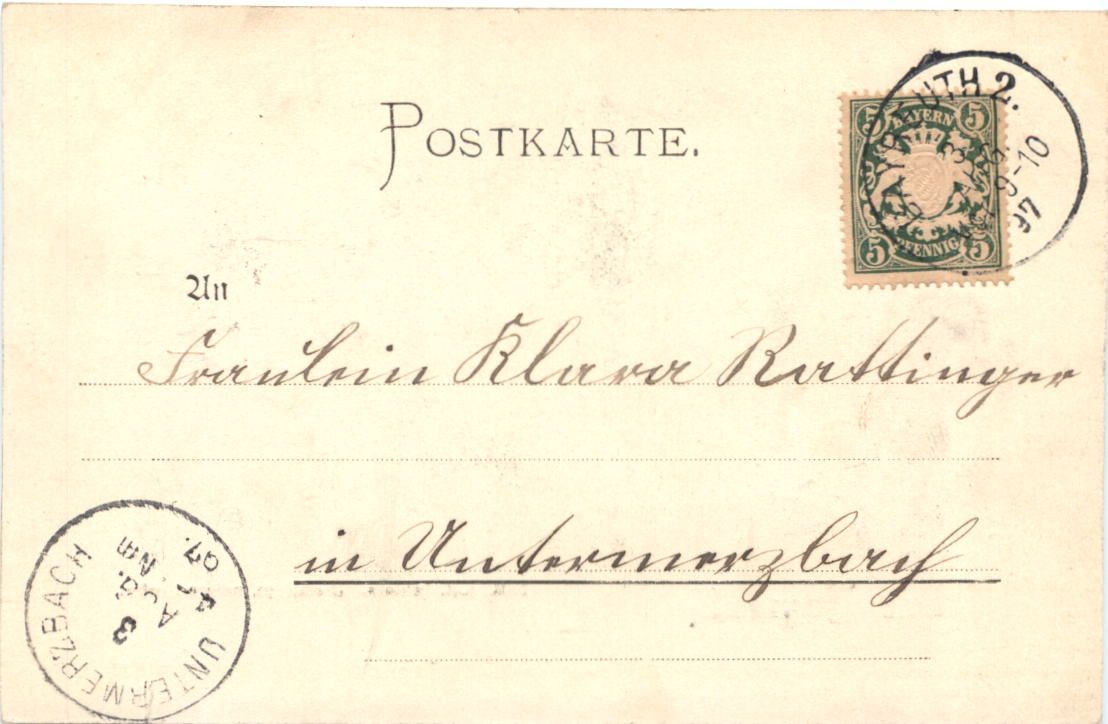 POSTKARTE.
5 BAYERN 5
5 PFENNIG 5
BAYREUTH 2.
3
AUG.
9-10
97
An
Fräulein Klara Rattinger
in Untermerzbach
UNTERMERZBACH
3
AUG.
NM
97.